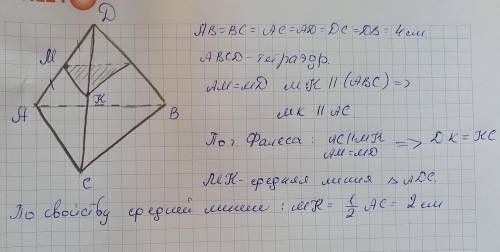 D
M
K
A
B
C
AB=BC=AC=AD=DC=DB=4см
ABCD-тетраэдр.
AM=MD MK || (ABC) =>
MK || AC
По т Фалеса: AC||MK
AM=MD => DK=KC
MK-средняя линия △ADC.
По свойству средней линии: MK= 1/2 AC = 2 см